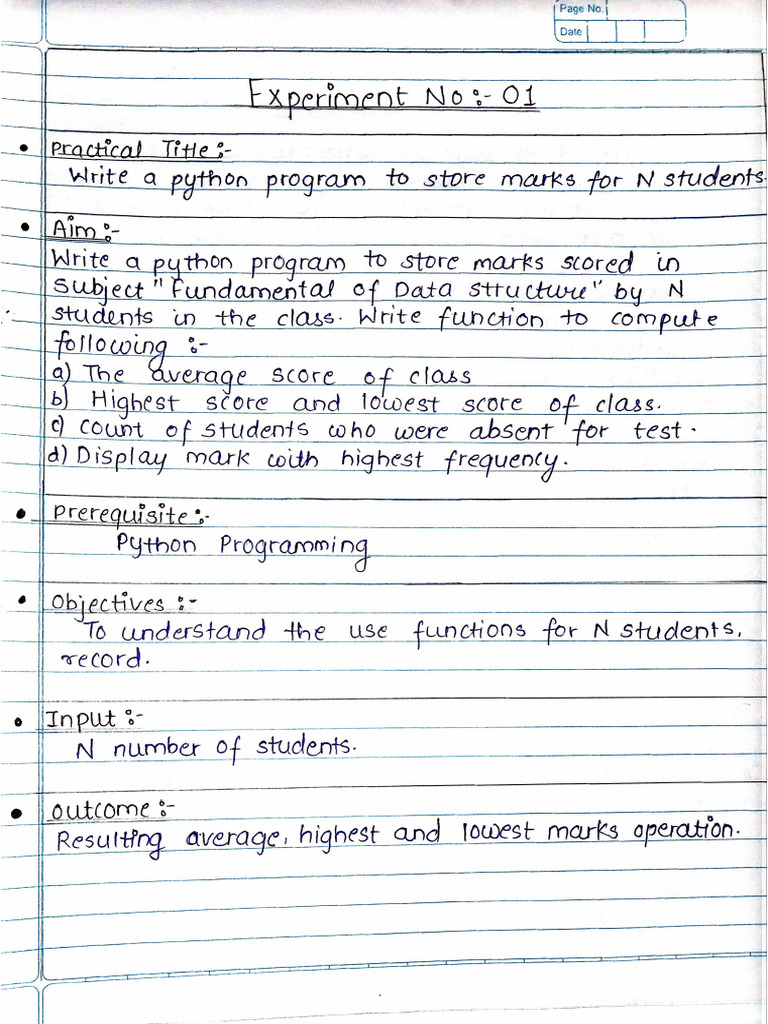 Page No.
Date
Experiment No:- 01
• Practical Title:-
Write a python program to store marks for N students.
• Aim:-
Write a python program to store marks scored in
Subject "Fundamental of Data structure" by N
students in the class. Write function to compute
following :-
a) The average score of class
b) Highest score and lowest score of class.
c) count of students who were absent for test.
d) Display mark with highest frequency.
• Prerequisite:-
Python Programming
• Objectives :-
To understand the use functions for N students,
record.
• Input :-
N number of students.
• outcome :-
Resulting average, highest and lowest marks operation.